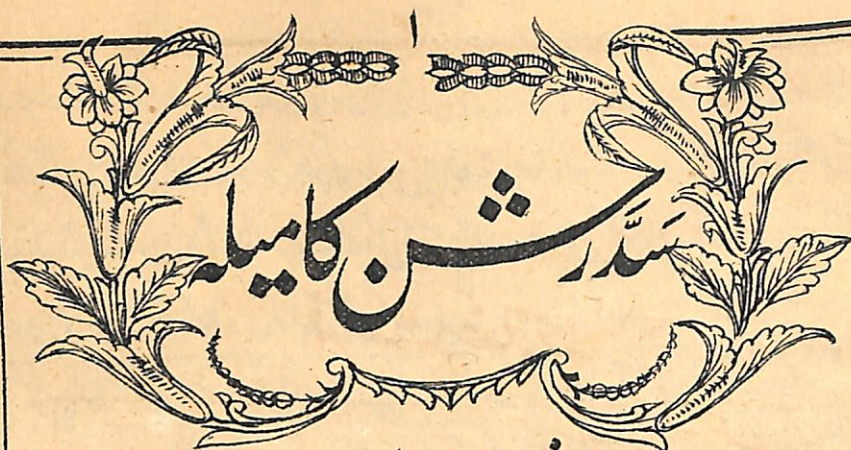 ۱
سَدَّرشن کا میلہ